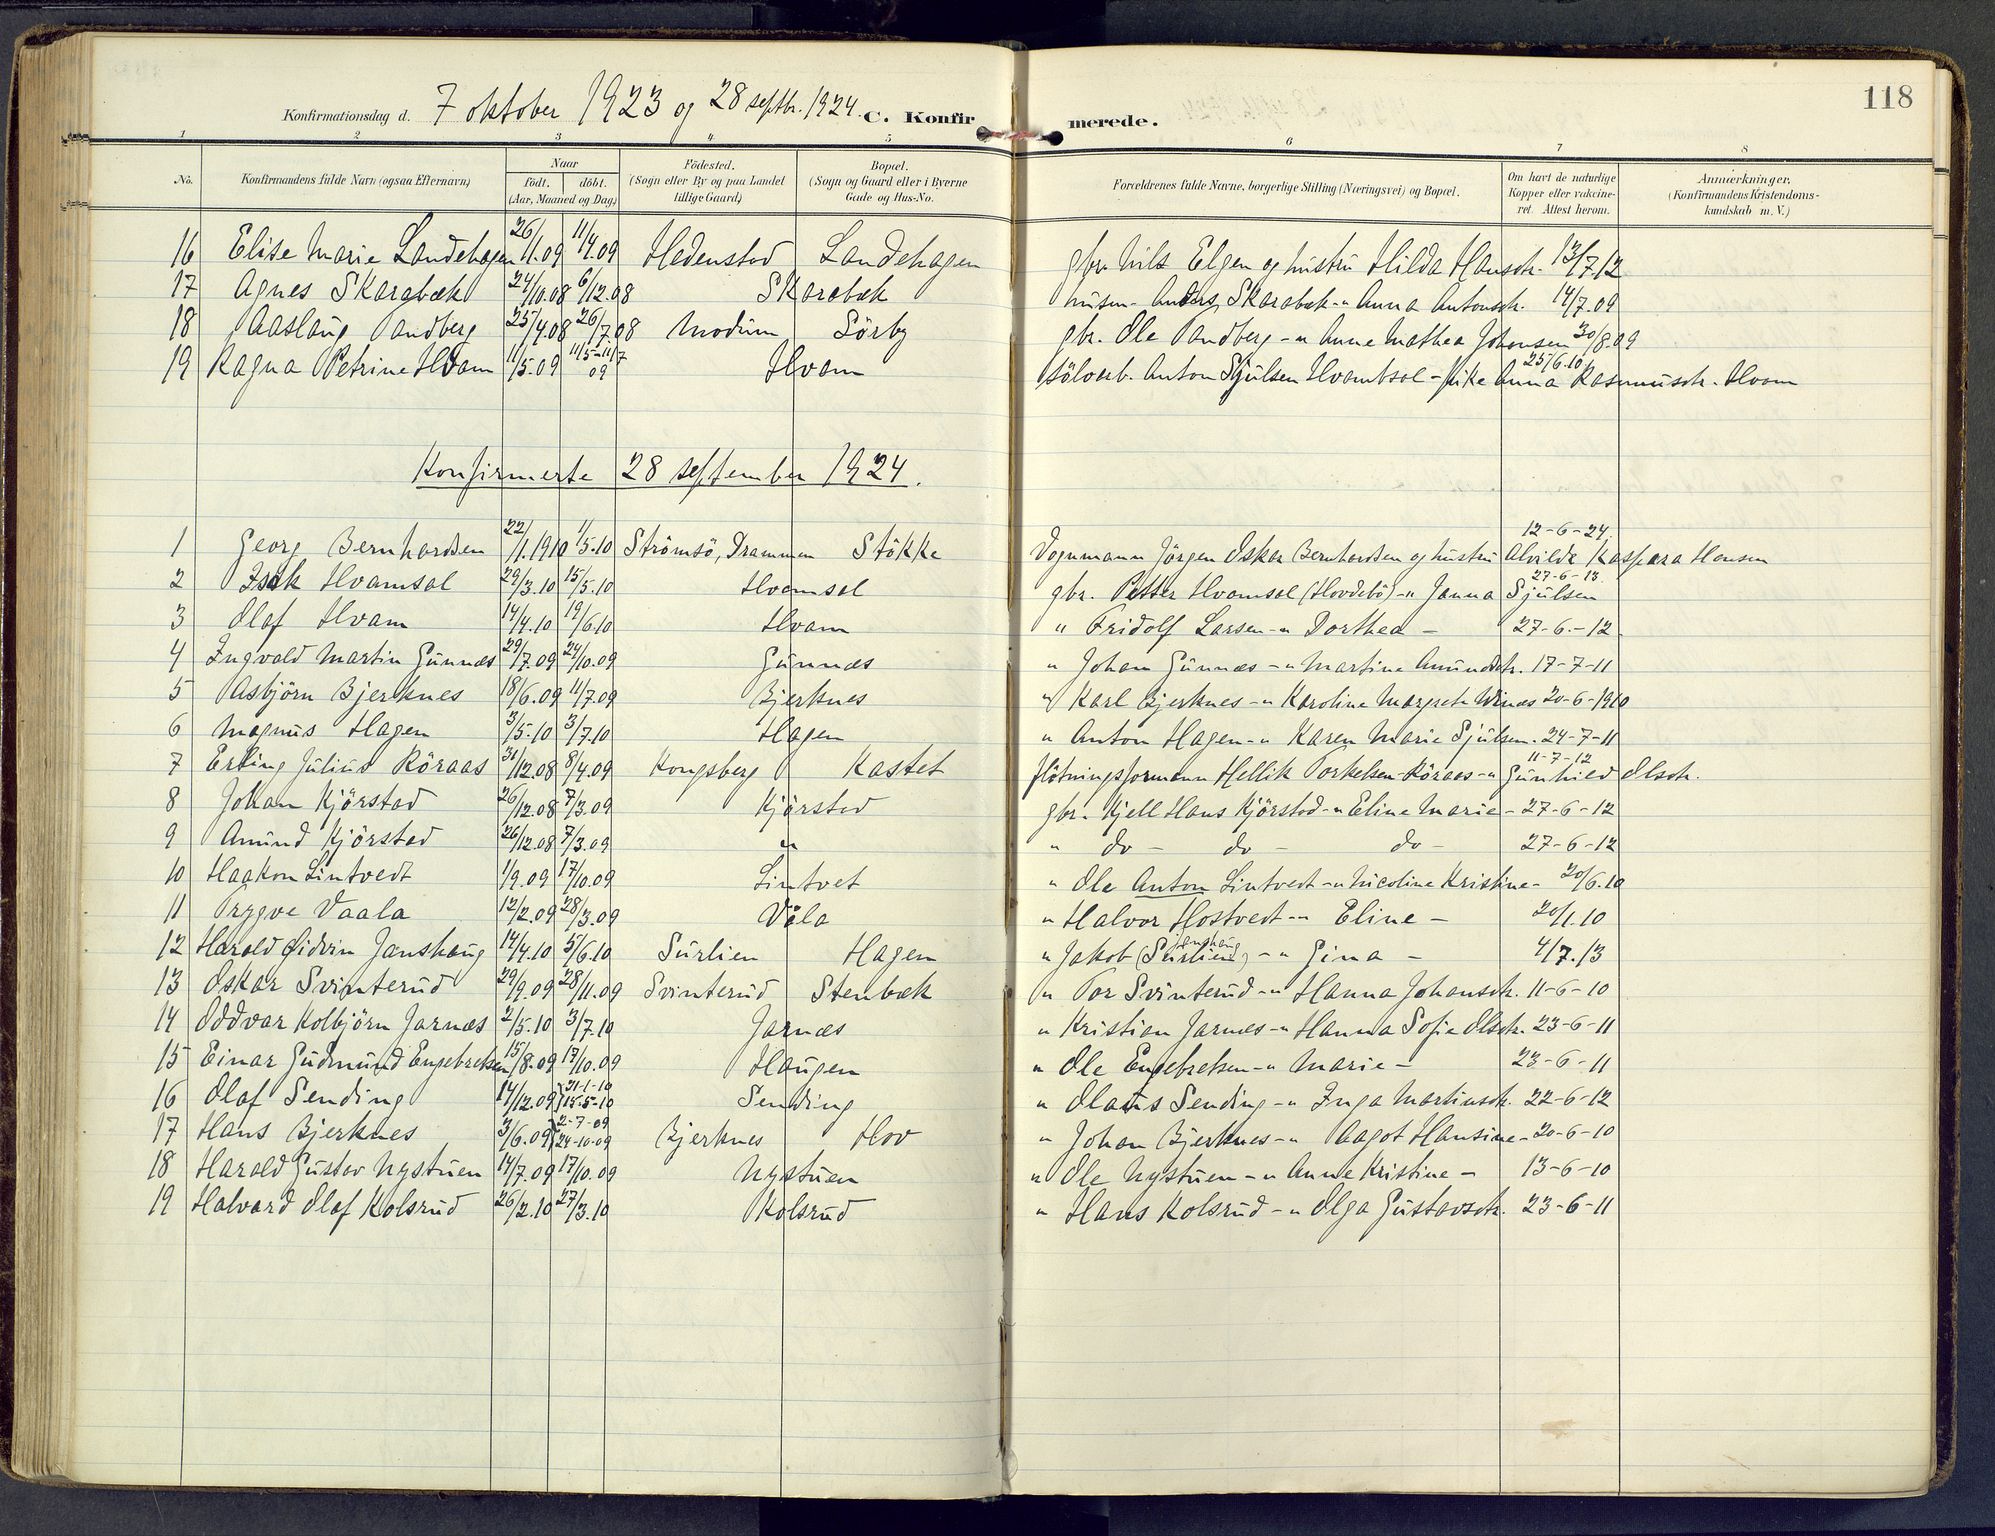 118
Konfirmationsdag d. 7 oktober 1923 og 28 septbr. 1924. C. Konfirmerede.
1 2 3 4 5 6 7 8
No. Konfirmandens fulde Navn (ogsaa Efternavn) Naar födt. döbt. (Aar, Maaned og Dag) Födested. (Sogn eller By og paa Landet tillige Gaard) Bopæl. (Sogn og Gaard eller i Byerne Gade og Hus-No. Forældrenes fulde Navne, borgerlige Stilling (Næringsvei) og Bopæl. Om havt de naturlige Kopper eller vakcineret. Attest herom. Anmærkninger. (Konfirmandens Kristendomskundskab m. V.)
16 Elise Marie Landehagen 26/11.09 11/4.09 Hedenstad Landehagen gbr. Nils Elgen og hustru Hilda Hansdtr. 13/7.12
17 Agnes Skarabæk 24/10.08 6/12.08 Skarabæk husm. Anders Skarabæk - " Anna Antonsdtr. 14/7.09
18 Aaslaug Sandberg 25/4.08 26/7.08 Modum Sörby gbr. Ole Sandberg - " Anne Mathea Johansen 30/8.09
19 Ragna Petrine Hvam 11/5.09 11/5-11/7 09 Hvam sölvarb. Anton Sjulsen Hvambsal - pike Anna Rasmusdtr. Hvam 25/6.10
Konfirmerte 28 september 1924.
1 Georg Bernhardsen 22/1.1910 1/5.10 Strömsö, Drammen Stökke Vognmann Jörgen Oskar Bernhardsen og hustru Alvilda Kaspara Hansen 12-6-24
2 Isak Hvamsal 29/3.10 15/5.10 Hvamsal gbr. Petter Hvamsal (Hovdebö) - " Janna Sjulsen 27-6-13
3 Olaf Hvam 14/4.10 19/6.10 Hvam " Fridolf Larsen - " Dorthea - 27-6-12
4 Ingvald Martin Gunnæs 29/7.09 24/10.09 Gunnæs " Johan Gunnæs - " Martine Amundsdtr. 17-7-11
5 Asbjörn Bjerknes 18/6.09 11/7.09 Bjerknes " Karl Bjerknes - " Karoline Margrete 20-6-1910
6 Magnus Hagen 3/5.10 3/7.10 Hagen " Anton Hagen - " Karen Marie Sjulsen. 24-7-11
7 Erling Julius Röraas 31/12.08 8/4.09 Kongsberg Kastet flötningsformann Hellik Torkelsen Röraas - " Gunhild Olsdtr. 11-7-12
8 Johan Kjörstad 26/12.08 7/3.09 Kjörstad gbr. Kjell Hans Kjörstad - " Eline Marie - 27-6-12
9 Amund Kjörstad 26/12.08 7/3.09 " " do - do - do - 27-6-12
10 Haakon Lintvedt 1/9.09 17/10.09 Lintvet " Ole Anton Lintvedt - " Nicoline Kristine - 20/6.10
11 Trygve Vaala 12/2.09 28/3.09 Våla " Halvor Hostvedt - " Eline - 20/1.10
12 Harald Eidvin Janshaug 14/4.10 5/6.10 Surlien Hagen " Jakob (Surlien) Janshaug - " Gina - 4/7.13
13 Oskar Svinterud 29/9.09 28/11.09 Svinterud Stenbæk " Tor Svinterud - " Hanna Johansdtr. 11-6-10
14 Oddvar Kolbjörn Jarnæs 2/5.10 3/7.10 Jarnæs " Kristian Jarnæs - " Hanna Sofie Olsdtr. 23-6-11
15 Einar Gudmund Engebretsen 15/8.09 17/10.09 Haugen " Ole Engebretsen - " Marie - 23-6-11
16 Olaf Sending 14/12.09 31-1-10 15-5-10 Sending " Olaus Sending - " Inga Martinsdtr. 22-6-12
17 Hans Bjerknes 3/6.09 2-7-09 24-10-09 Bjerknes Hov " Johan Bjerknes - " Aagot Hansine - 20-6-10
18 Harald Gustav Nystuen 14/7.09 17/10.09 Nystuen " Ole Nystuen - " Anne Kristine - 13-6-10
19 Halvard Olaf Kolsrud 26/2.10 27/3.10 Kolsrud " Hans Kolsrud - " Olga Gustavsdtr. 23-6-11